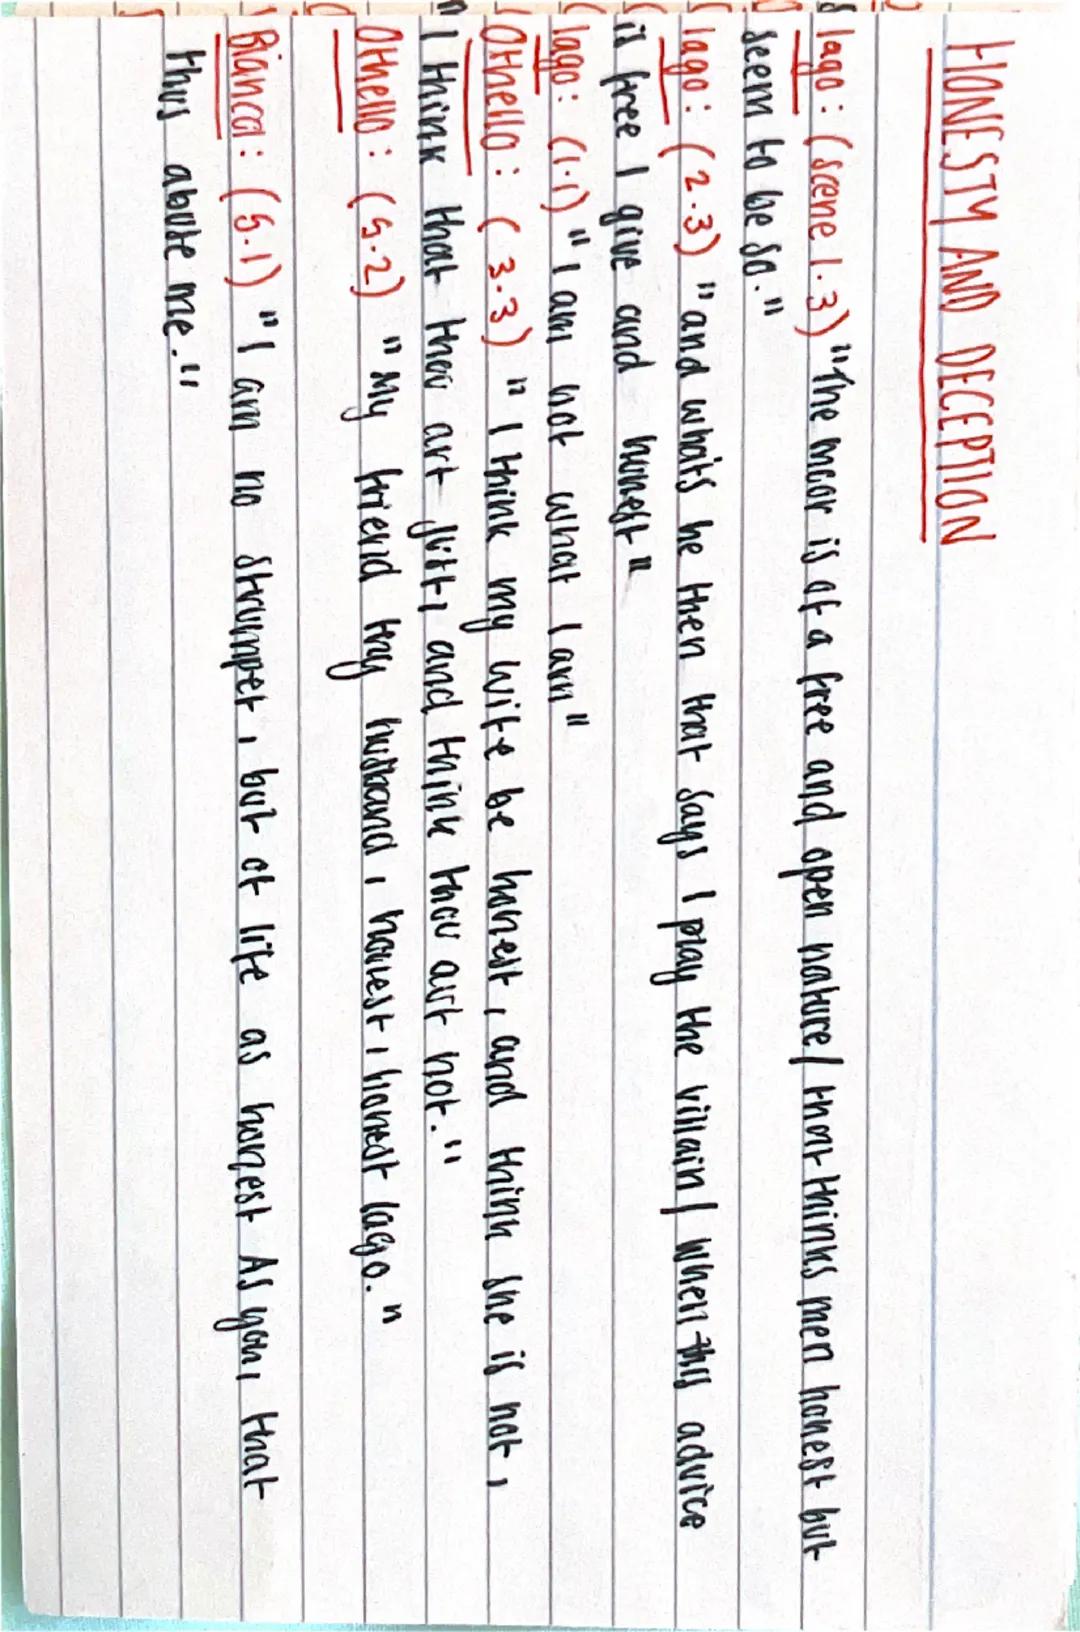 HONESTY AND DECEPTION
Iago: (scene 1.3) "The moor is of a free and open nature/ that thinks men honest but
seem to be so."
Iago: (2.3) "and what's he then that says I play the villain/ when this advice
is free I give and honest"
Iago: (1.1) "I am not what I am"
Othello: (3.3) "I think my wife be honest, and think she is not,
I think that thou art just, and think thou art not."
Othello: (5.2) "My friend thy husband, honest, honest Iago."
Bianca: (5.1) "I am no strumpet, but of life as honest As you, that
thus abuse me."